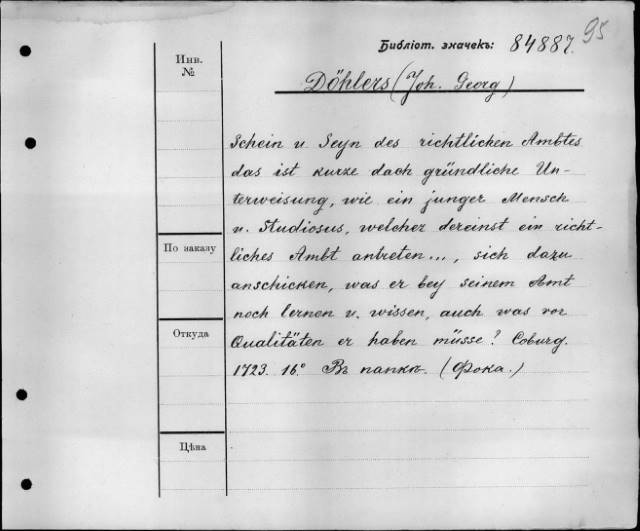 95
Библіот. значекъ: 84887.
Инв.
№
Döhlers (Joh. Georg)
Schein u Seyn des richtlichen Ambtes
das ist kurze dach gründliche Un-
terweisung, wie ein junger Mensch
u. Studiosus, welcher dereinst ein richt-
liches Ambt antreten..., sich dazu
anschicken, was er bey seinem Amt
noch lernen u. wissen, auch was vor
Qualitäten er haben müsse? Coburg.
1723. 16° Въ папкѣ. (Фока.)
По заказу
Откуда
Цѣна